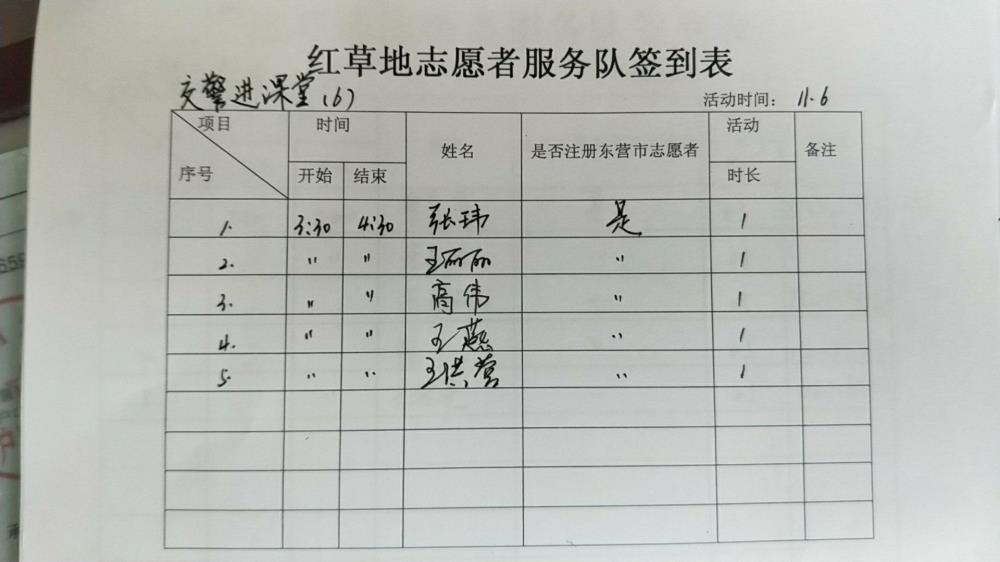 红草地志愿者服务队签到表
交警进课堂(6) 活动时间: 11.6
项目 时间 姓名 是否注册东营市志愿者 活动 备注
序号 开始 结束 时长
1. 3:30 4:30 张玮 是 1
2. " " 王丽丽 " 1
3. " " 高伟 " 1
4. " " 王燕 " 1
5. " " 王洪营 " 1